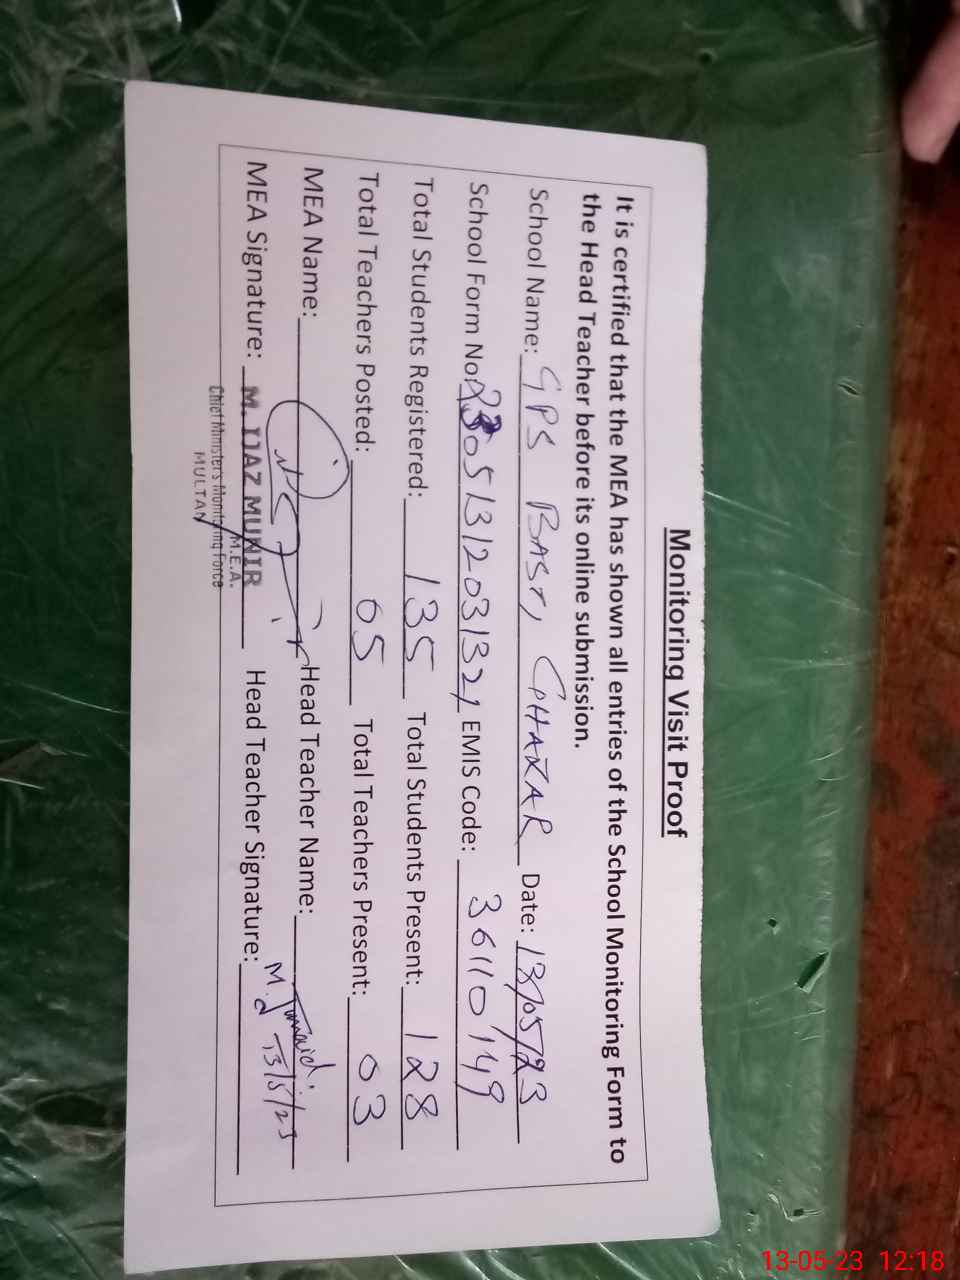 Monitoring Visit Proof
It is certified that the MEA has shown all entries of the School Monitoring Form to
the Head Teacher before its online submission.
School Name: GPS BASTI CHAKAR Date: 13/05/23
School Form No: 23051312031321 EMIS Code: 36110149
Total Students Registered: 135 Total Students Present: 128
Total Teachers Posted: 05 Total Teachers Present: 03
MEA Name: Head Teacher Name: M. Junaid
MEA Signature: M. IJAZ MUNIR Head Teacher Signature: 13/5/23
M.E.A.
Chief Minister's Monitoring Force
MULTAN
13-05-23 12:18